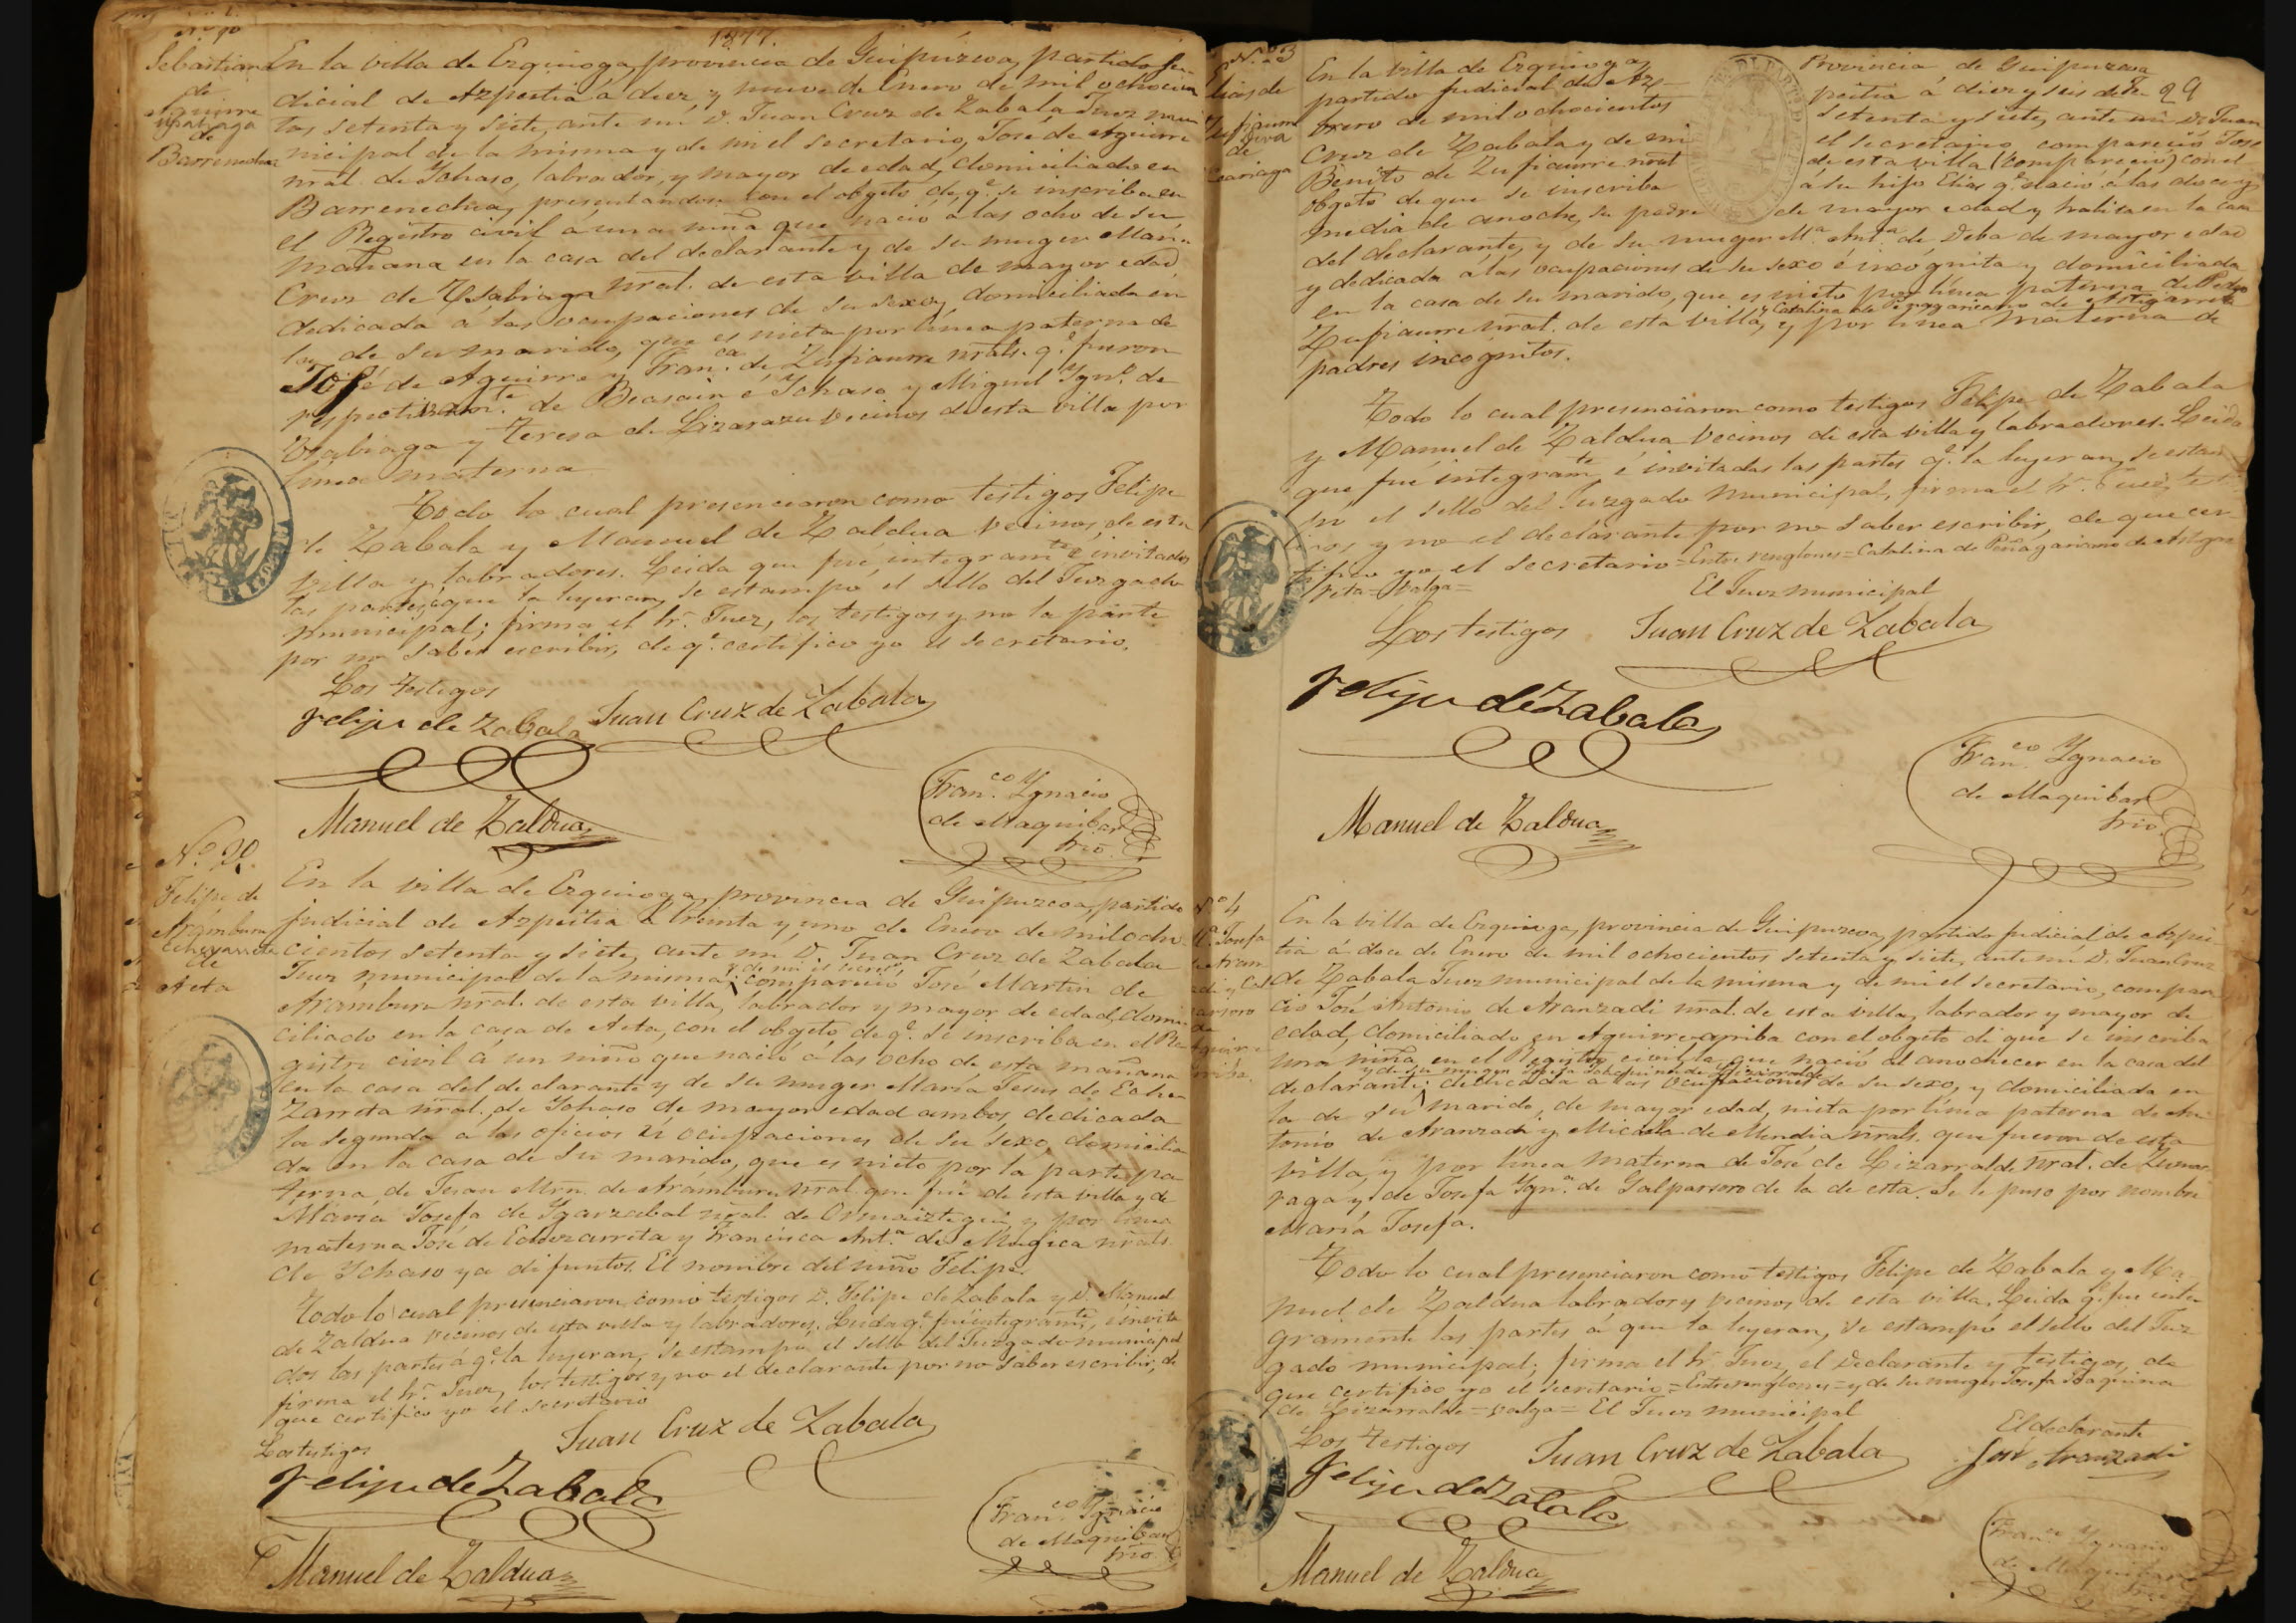 1877.
Sebastiana
de
Aguirre
Barrenechea
En la villa de Ezquioga, provincia de Guipúzcoa, partido ju-
dicial de Azpeitia á diez y nueve de Enero de mil ochocien
tos setenta y siete, ante mi D. Juan Cruz de Zabala Juez mu
nicipal de la misma y de mi el secretario, José de Aguirre
nral. de Ichaso, labrador, y mayor de edad, domiciliado en
Barrenechea, presentandose con el obgeto de q.e se inscriba en
el Registro civil á una niña que nació á las ocho de su
mañana en la casa del declarante y de su muger María
Cruz de Ysabiaga nral. de esta villa de mayor edad
dedicada á las ocupaciones de su sexo, domiciliada en
la de su marido, que es nieta por línea paterna de
José de Aguirre y Fran.ca de Zufiaurre nrals. q.e fueron
respectivam.te de Beasain é Ichaso y Miguel Ygn.o de
Ysabiaga y Teresa de Lizarazu vecinos de esta villa por
linea materna
Todo lo cual presenciaron como testigos Felipe
de Zabala y Manuel de Zaldua vecinos de esta
villa y labradores. Leida que fué integram.te é invitados
las partes á que la leyeran, se estampó el sello del Juzgado
municipal; firma el Sr. Juez, los testigos y no la parte
por no saber escribir, de q.e certifico yo el secretario.
Los testigos
Felipe de Zabala Juan Cruz de Zabala
Manuel de Zaldua
Fran.co Ygnacio
de Maquibar
Srio.
N.o 2.o
Felipe de
Aramburu
Echezarreta
de
Aeta
En la villa de Ezquioga, provincia de Guipuzcoa, partido
judicial de Azpeitia á treinta y uno de Enero de mil ocho
cientos setenta y siete, ante mi D. Juan Cruz de Zabala
Juez municipal de la misma y de mi el secret.o compareció José Martin de
Aramburu nral. de esta villa, labrador y mayor de edad, domi
ciliado en la casa de Aeta, con el obgeto de q.e se inscriba en el Re
gistro civil á un niño que nació á las ocho de esta mañana
en la casa del declarante y de su muger María Jesus de Eche
zarreta nral. de Ichaso de mayor edad ambos, dedicada
la segunda á los oficios ú ocupaciones de su sexo, domicilia
da en la casa de su marido, que es nieto por la parte pa
terna de Juan Mrn. de Aramburu nral. que fué de esta villa y de
María Josefa de Ygarzabal nral. de Ormaiztegui y por linea
materna José de Echezarreta y Francisca Ant.a de Mugica nrals.
de Ychaso ya difuntos. El nombre del niño Felipe.
Todo lo cual presenciaron como testigos D. Felipe de Zabala y D. Manuel
de Zaldua vecinos de esta villa y labradores. Leida q.e fué integram.te, é invita
dos las partes á q.e la leyeran, se estampó el sello del Juzgado municipal
firma el Sr. Juez, los testigos y no el declarante por no saber escribir, de
que certifico yo el secretario
Los testigos
Juan Cruz de Zabala
Felipe de Zabala
Manuel de Zaldua
Fran.co Ygnacio
de Maquibar
Srio
N.o 3
Elias de
Zufiaurre
Deva
de
En la villa de Ezquioga, Provincia de Guipuzcoa
partido judicial de Azpeitia á diez y seis de Fe
brero de mil ochocientos setenta y siete, ante mi D. Juan
Cruz de Zabala y de mi el secretario compareció José
Benito de Zufiaurre nral de esta villa (compareció) con el
obgeto de que se inscriba á su hijo Elias q.e nació á las doce y
media de anoche, su padre de mayor edad y habita en la casa
del declarante, y de su muger M.a Ant.a de Deba de mayor edad
y dedicada á las ocupaciones de su sexo é incógnita y domiciliada
en la casa de su marido, que es nieto por linea paterna de Pedro
Zufiaurre nral. de esta villa, y Catalina de Peñagaricano de Astigarreta y por linea materna de
padres incógnitos.
Todo lo cual presenciaron como testigos Felipe de Zabala
y Manuel de Zaldua vecinos de esta villa y labradores. Leida
que fué integram.te é invitadas las partes q.e la leyeran, se estam
pó el sello del Juzgado municipal, firma el Sr. Juez, testi
gos y no el declarante por no saber escribir, de que cer
tifico yo el secretario = Entre renglones = Catalina de Peñagaricano de Astigar
reta = Valga =
El Juez municipal
Los testigos Juan Cruz de Zabala
Felipe de Zabala
Manuel de Zaldua
Fran.co Ygnacio
de Maquibar
Srio.
N.o 4
M.a Josefa
En la villa de Ezquioga, provincia de Guipuzcoa, partido judicial de Azpei
tia á doce de Enero de mil ochocientos setenta y siete, ante mi D. Juan Cruz
de Zabala Juez municipal de la misma y de mi el secretario, compare
ció José Antonio de Aranzadi nral. de esta villa, labrador y mayor de
edad, domiciliado en Aguirrearriba con el obgeto de que se inscriba
una niña en el Registro civil, la que nació al anochecer en la casa del
declarante; y de su muger Josefa Joaquina de Lizarralde dedicada á las ocupaciones de su sexo, y domiciliada en
la de su marido, de mayor edad, nieta por línea paterna de An
tonio de Aranzadi y Micaela de Mendia nrals. que fueron de esta
villa, y por linea materna de José de Lizarralde nral. de Zumar
raga y de Josefa Ygn.a de Galparsoro de la de esta. Se le puso por nombre
María Josefa.
Todo lo cual presenciaron como testigos Felipe de Zabala y Ma
nuel de Zaldua labradores y vecinos de esta villa. Leida q.e fue inte
gramente las partes á que la leyeran, se estampó el sello del Juz
gado municipal; firma el Sr. Juez, el Declarante y testigos, de
que certifico yo el secretario = Entrerenglones = y de su muger Josefa Joaquina
de Lizarralde = valga = El Juez municipal
Los testigos Juan Cruz de Zabala
El declarante
José Aranzadi
Felipe de Zabala
Manuel de Zaldua
Fran.co Ygnacio
de Maquibar
Srio